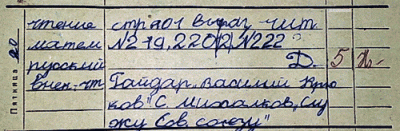 чтение стр 101 выраз. чит.
матем №219, 220(2), №222
русский Д. 5
внек. чт Гайдар „Василий Крю
ков" С. Михалков „Слу
жу Сов. союзу"
Пятница 20